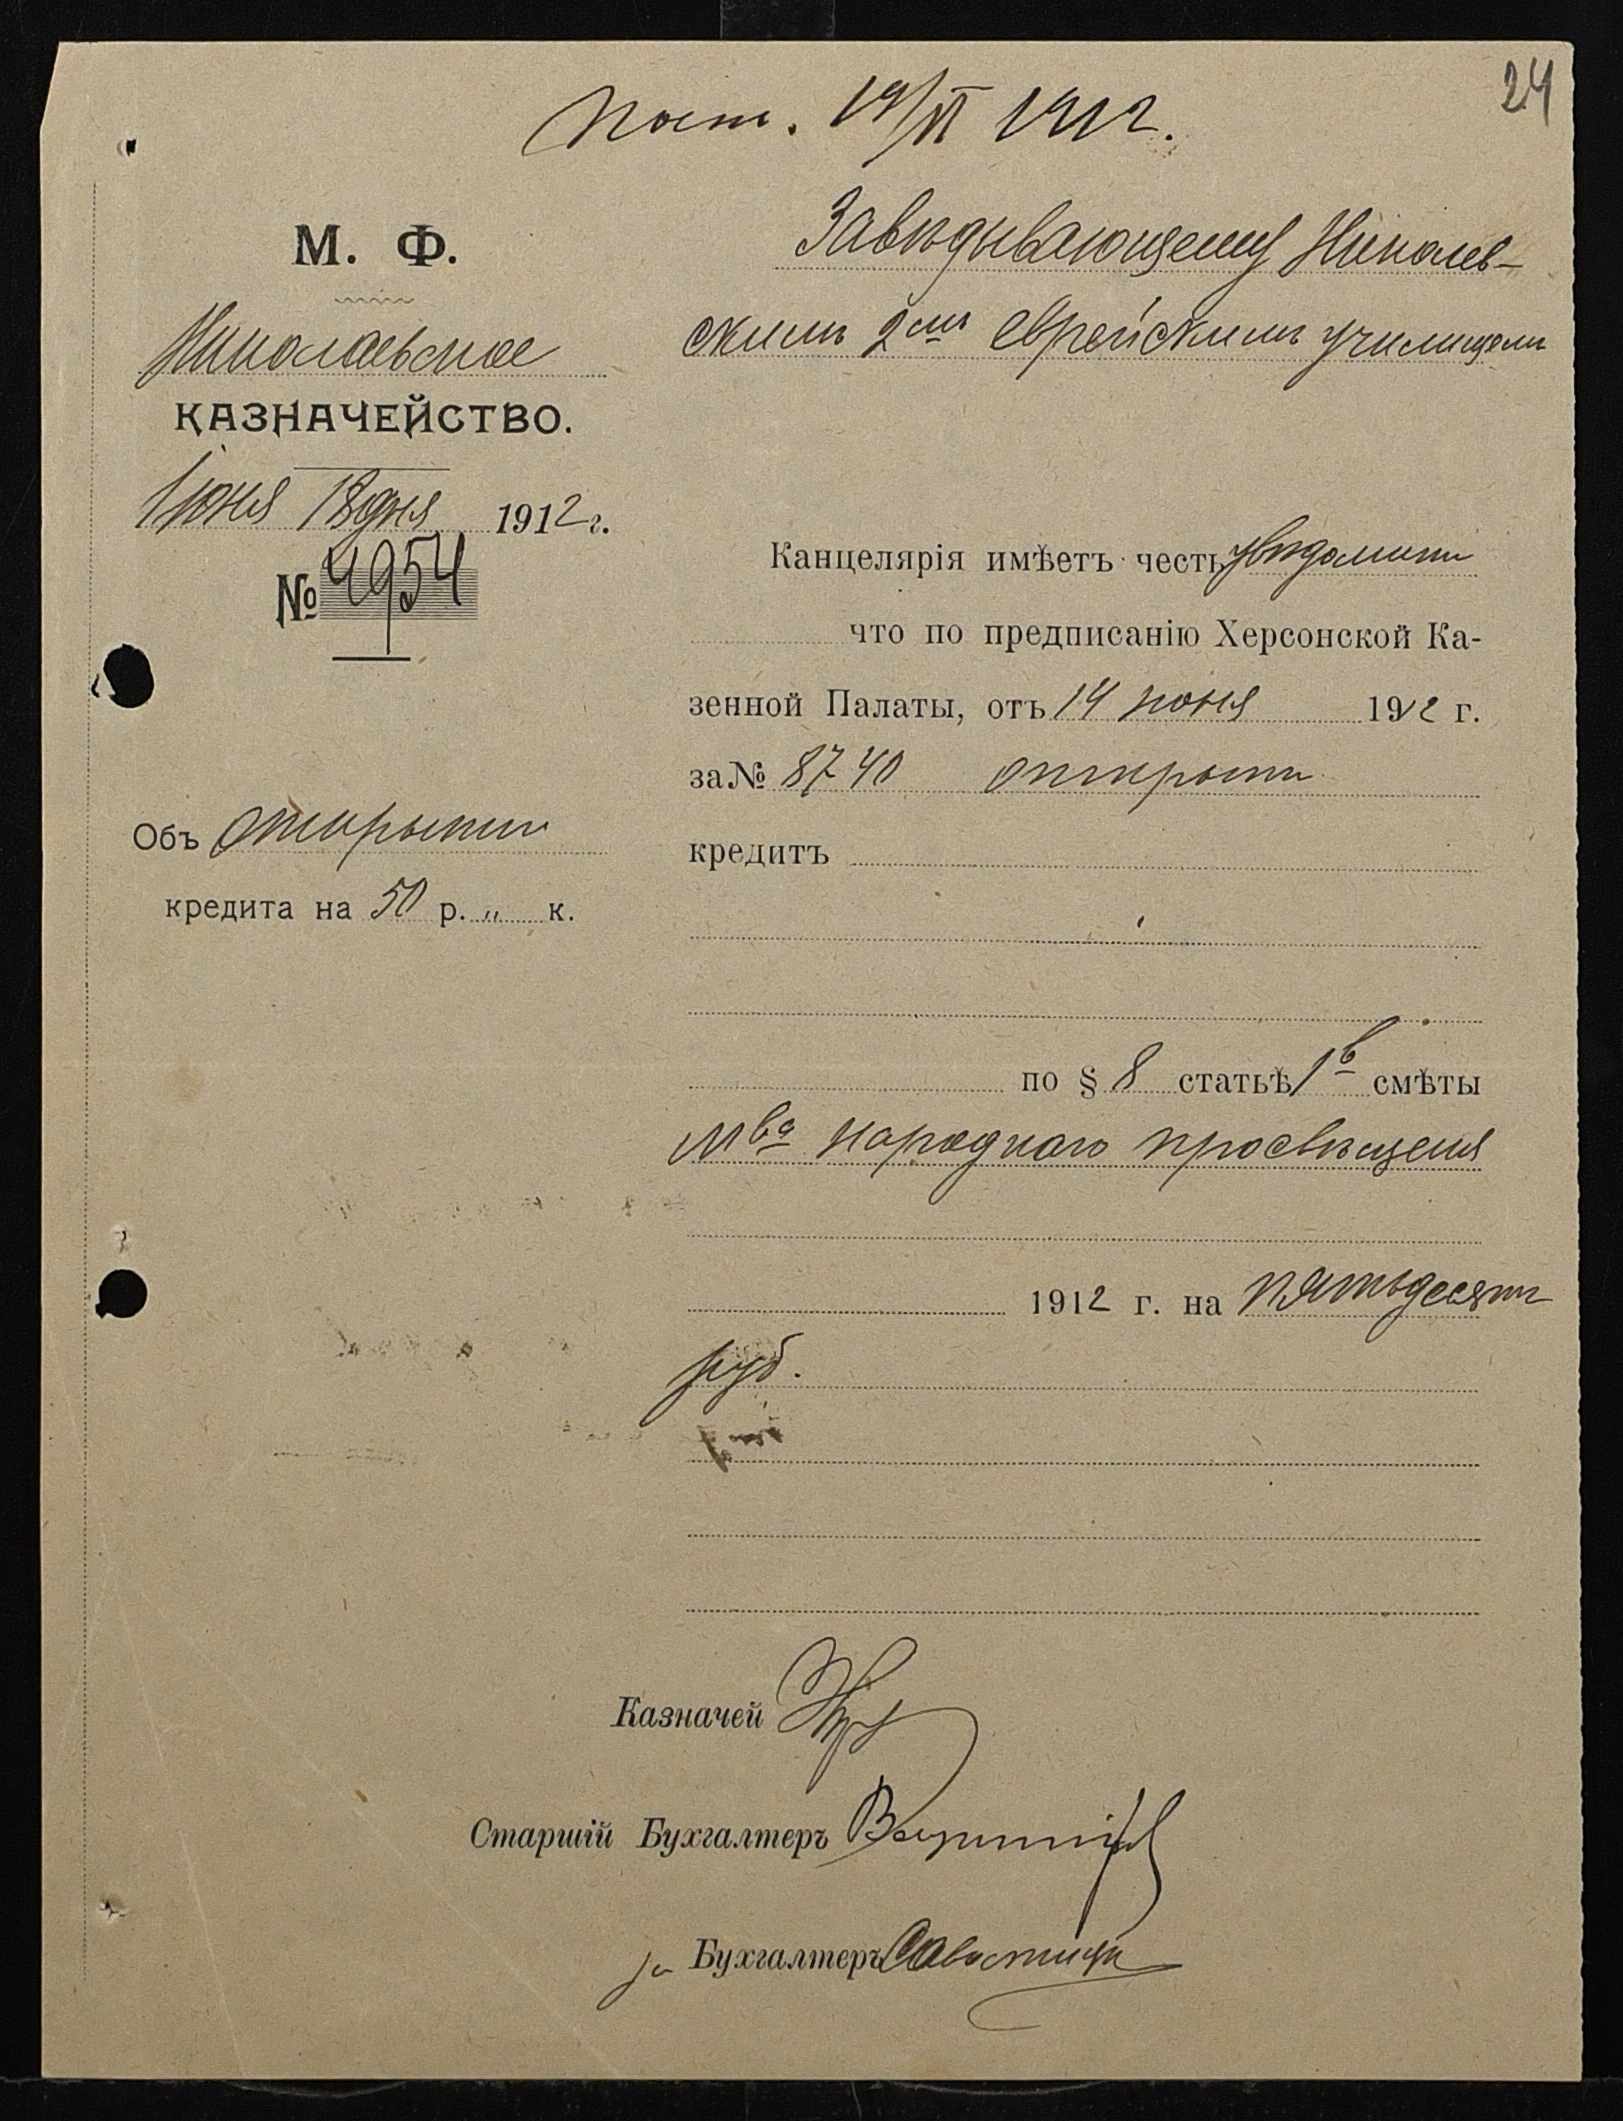 24
Пост. 19/VI 1912.
М. Ф.
Николаевское
КАЗНАЧЕЙСТВО.
Іюня 18 дня 1912 г.
№ 4954
Объ открытіи
кредита на 50 р. „ к.
Завѣдывающему Николаев-
скимъ 2мъ еврейскимъ училищемъ
Канцелярія имѣетъ честь увѣдомить
что по предписанію Херсонской Ка-
зенной Палаты, отъ 14 іюня 1912 г.
за № 8740 открытъ
кредитъ
по § 8 статьѣ 1в смѣты
Мва народнаго просвѣщенія
1912 г. на пятьдесятъ
руб.
Казначей
Старшій Бухгалтеръ
за Бухгалтеръ